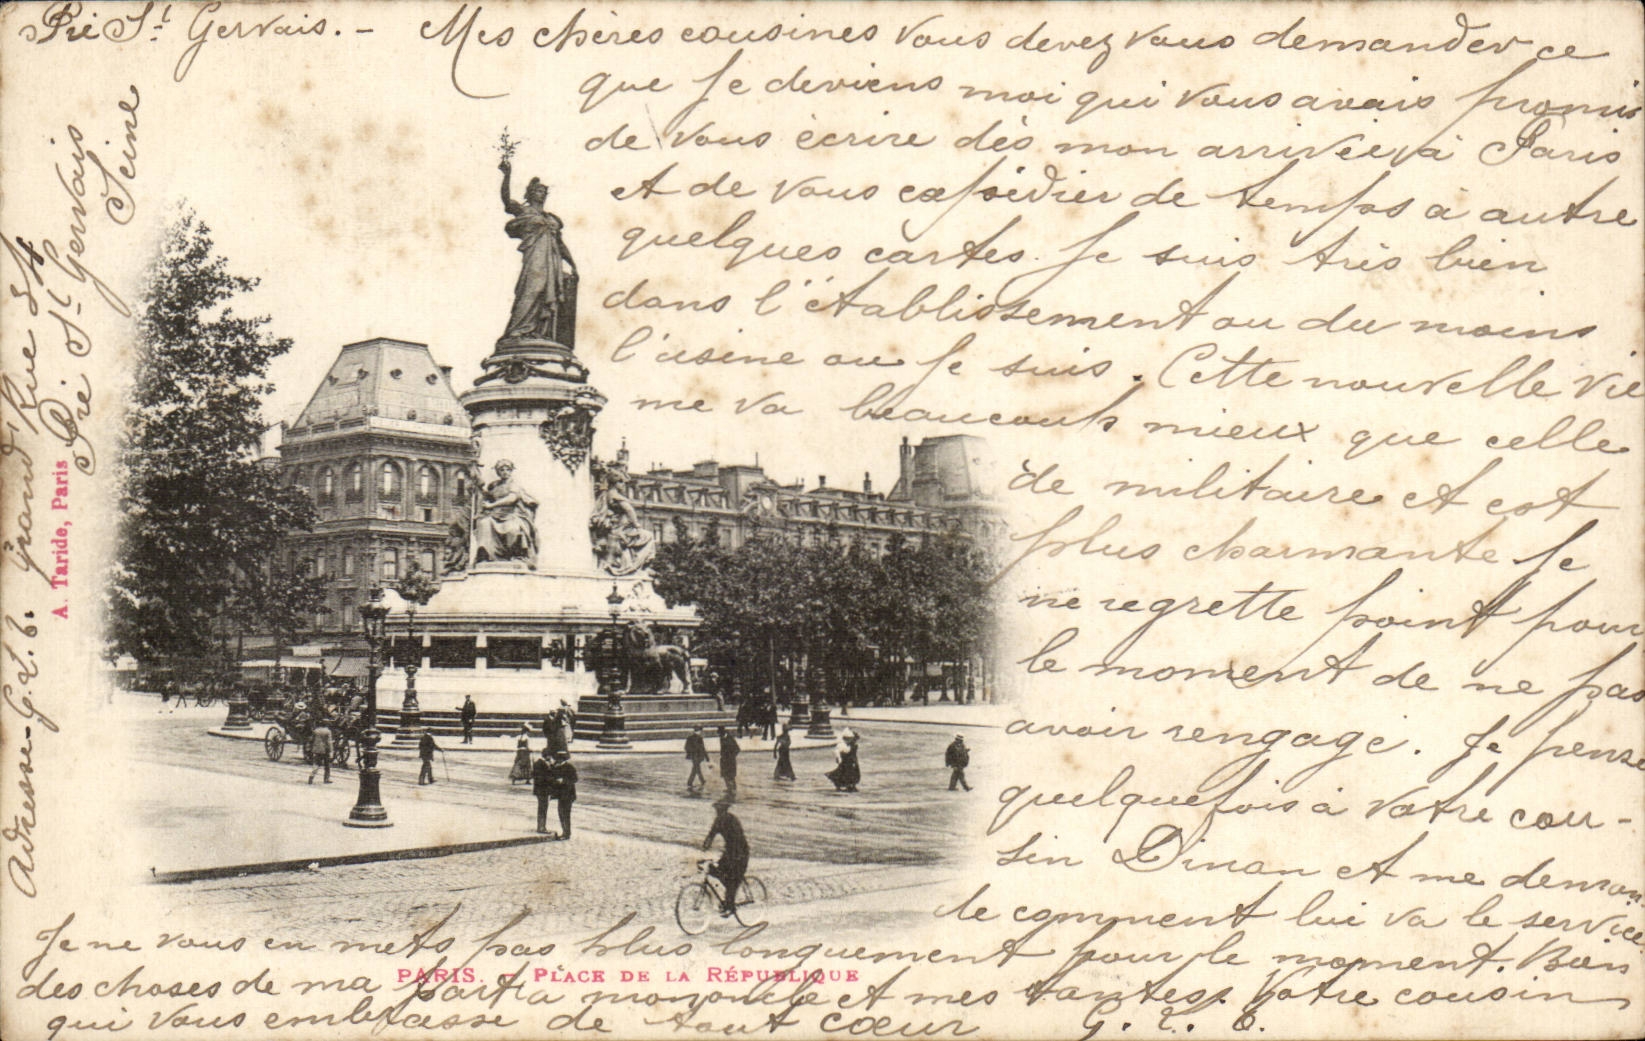 Pré St Gervais. -
Mes chères cousines vous devez vous demander ce
que je deviens moi qui vous avais promis
de vous écrire dès mon arrivée à Paris
et de vous expédier de temps à autre
quelques cartes. Je suis très bien
dans l'établissement ou du moins
l'usine ou je suis. Cette nouvelle vie
me va beaucoup mieux que celle
de militaire et est
plus charmante je
ne regrette point pour
le moment de ne pas
avoir rengagé. Je pense
quelquefois à votre cou-
sin Dinan et me deman
de comment lui va le service
Je ne vous en mets pas plus longuement pour le moment. Bien
des choses de ma part à mon oncle et mes tantes. Votre cousin
qui vous embrasse de tout cœur
PARIS. - PLACE DE LA RÉPUBLIQUE
A. Taride, Paris
Adresse Grand' Rue
Pré St Gervais
Seine